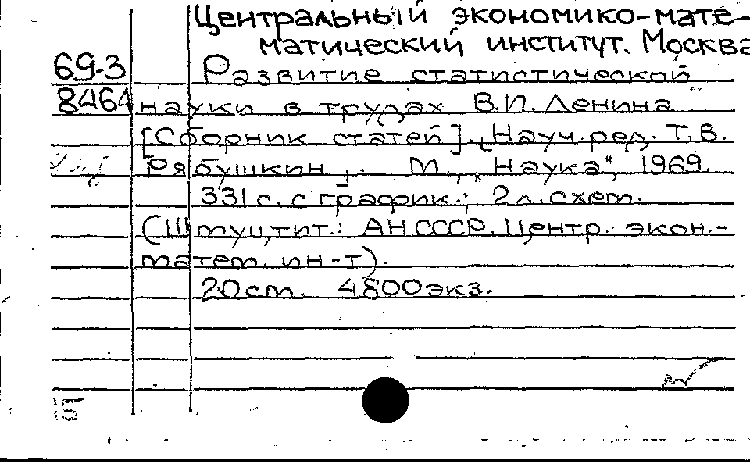 Центральный экономико-мате-
матический институт. Москва
69-3 Развитие статистической
8464 науки в трудах В.И. Ленина
[Сборник статей]. [Науч. ред. Т.В.
Рябушкин]. М., "Наука", 1969.
331 с. с график.; 2 л. схем.
(Шмуцтит.: АН СССР. Центр. экон.-
матем. ин-т).
20 см. 4800 экз.